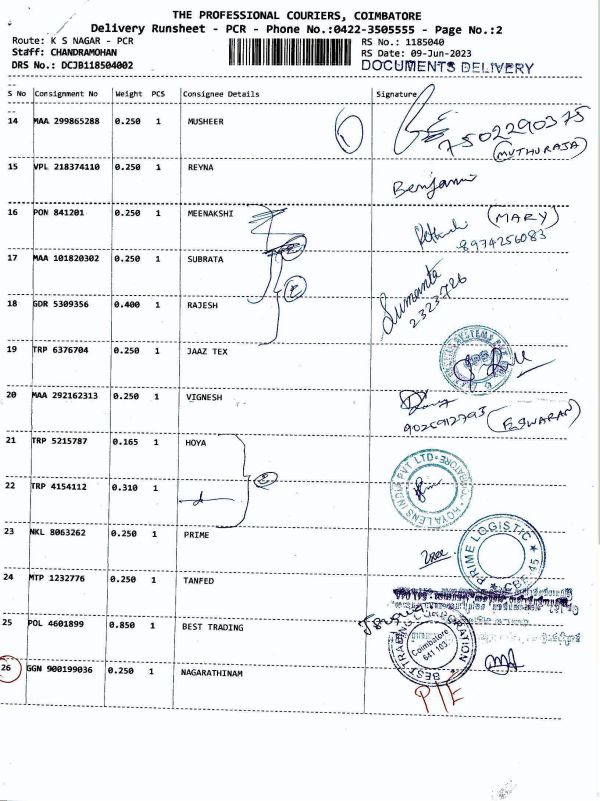 THE PROFESSIONAL COURIERS, COIMBATORE
Delivery Runsheet - PCR - Phone No.:0422-3505555 - Page No.:2
Route: K S NAGAR - PCR
RS No.: 1185040
Staff: CHANDRAMOHAN
RS Date: 09-Jun-2023
DRS No.: DCJB118504002
DOCUMENTS DELIVERY
S No Consignment No Weight PCS Consignee Details Signature
14 MAA 299865288 0.250 1 MUSHEER
7502290375
(MUTHURAJA)
15 VPL 218374110 0.250 1 REYNA
Benjamin
16 PON 841201 0.250 1 MEENAKSHI
(MARY)
8974256083
17 MAA 101820302 0.250 1 SUBRATA
Sumanta
2323726
18 GDR 5309356 0.400 1 RAJESH
19 TRP 6376704 0.250 1 JAAZ TEX
20 MAA 292162313 0.250 1 VIGNESH
(ESWARAN)
21 TRP 5215787 0.165 1 HOYA
HOYA LENS INDIA PVT LTD
COIMBATORE
22 TRP 4154112 0.310 1
23 NKL 8063262 0.250 1 PRIME
PRIME LOGISTIC
CBE-45
24 MTP 1232776 0.250 1 TANFED
25 POL 4601899 0.850 1 BEST TRADING
BEST TRADING CORPORATION
Coimbatore
641 103
26 GGN 900199036 0.250 1 NAGARATHINAM